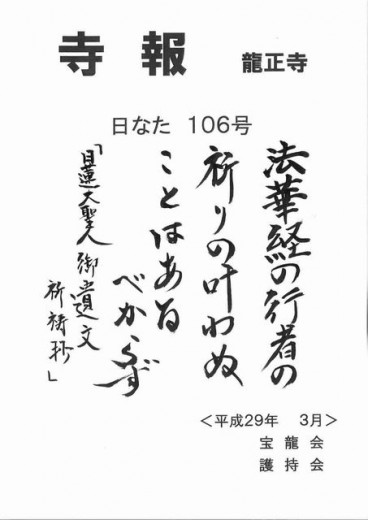 寺報 龍正寺
日なた 106号
法華経の行者の
祈りの叶わぬ
ことはある
べからず
「日蓮大聖人御遺文
祈祷抄」
＜平成29年 3月＞
宝龍会
護持会